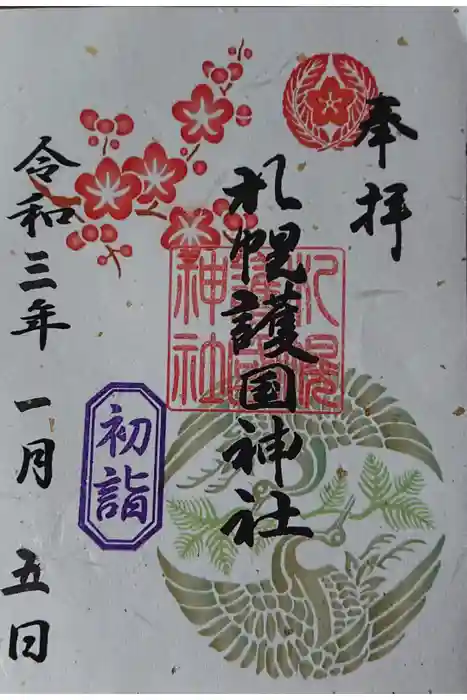 奉拝
札幌護国神社
札幌護国神社
初詣
令和三年 一月 五日